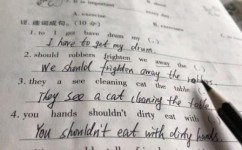 A. important
A. exercise
12. 连词成句。(10分)
1. to I get have drum my (.)
I have to get my drum.
2. should robbers frighten we away the
We should frighten away the
3. they a see cleaning cat the table
They see a cat cleaning the table
4. you hands shouldn't dirty eat with
You shouldn't eat with dirty hands